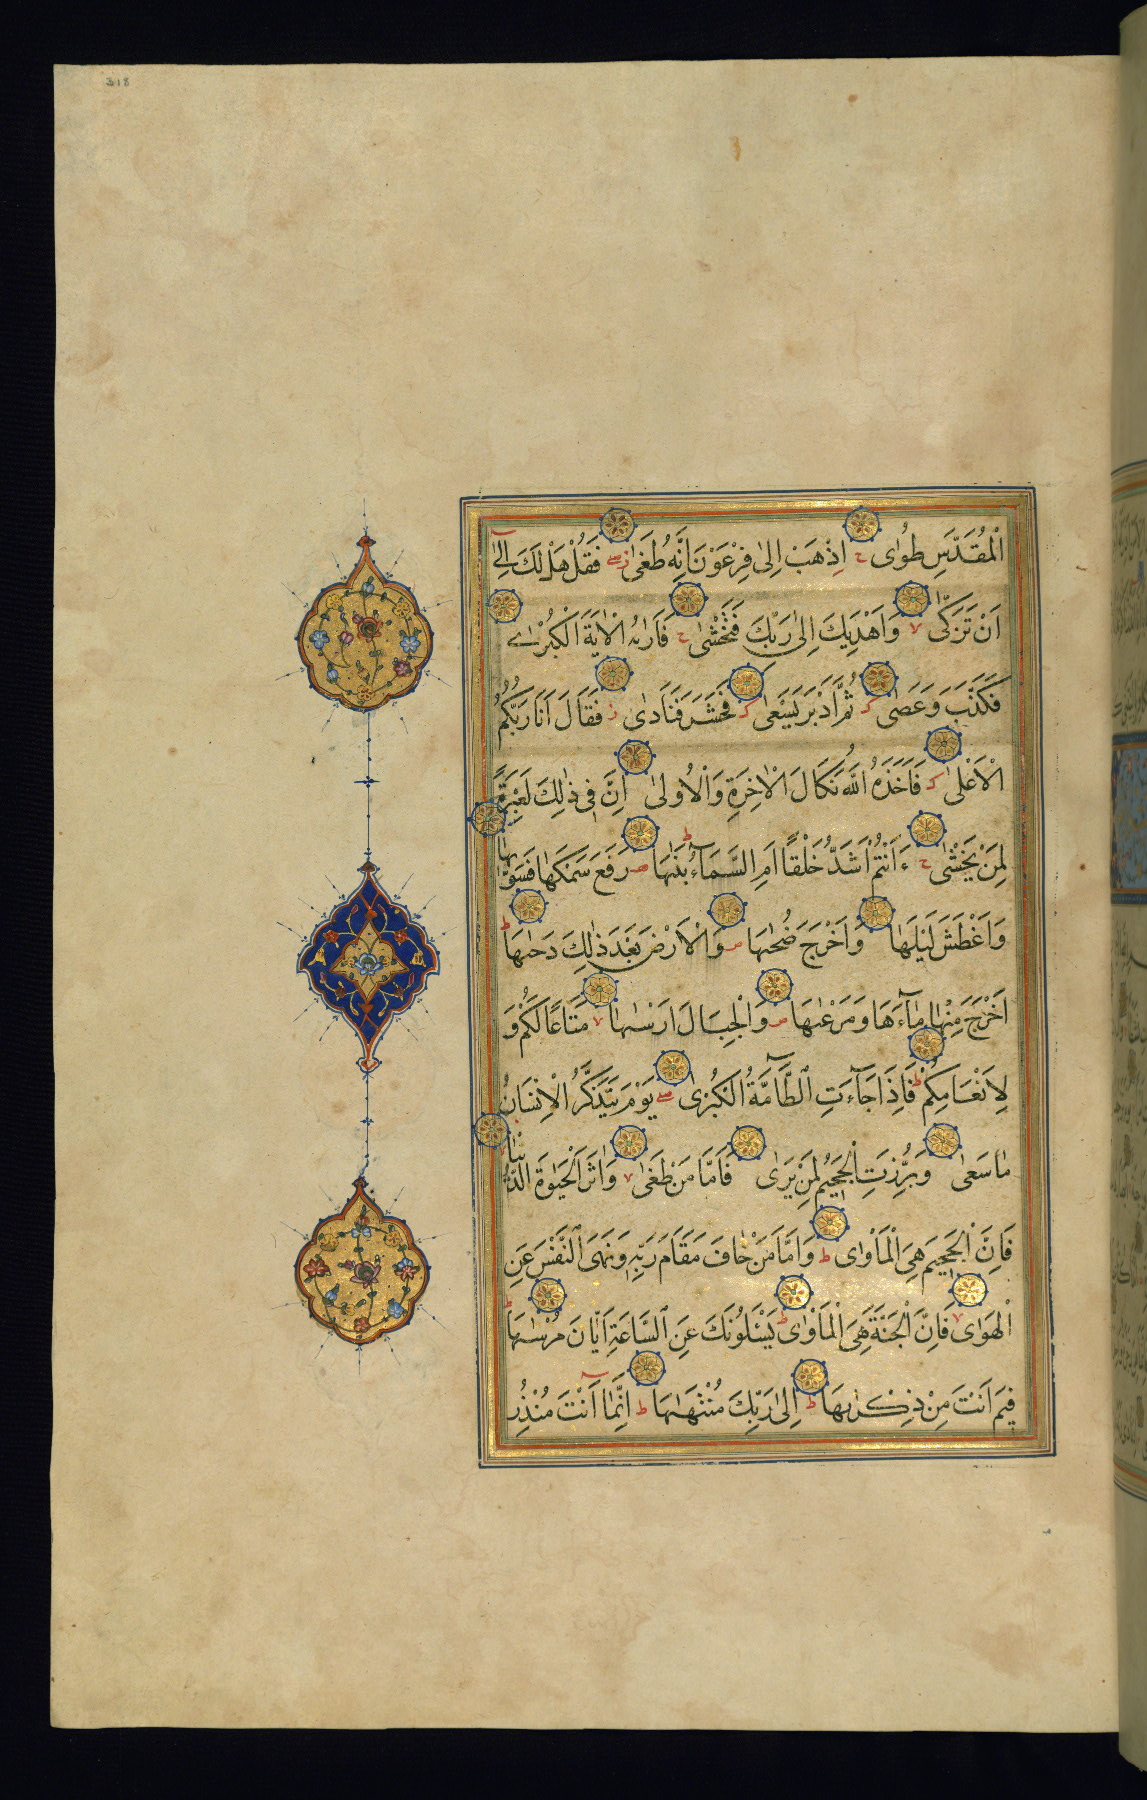 318
الْمُقَدَّسِ طُوٰى ج اِذْهَبْ اِلٰى فِرْعَوْنَ اِنَّهُ طَغٰى ز صلے فَقُلْ هَلْ لَكَ اِلٰٓى
اَنْ تَزَكّٰى لا وَاَهْدِيَكَ اِلٰى رَبِّكَ فَتَخْشٰى ج فَاَرٰىهُ الْاٰيَةَ الْكُبْرٰى
فَكَذَّبَ وَعَصٰى ك ثُمَّ اَدْبَرَ يَسْعٰى ك فَحَشَرَ فَنَادٰى ز فَقَالَ اَنَا رَبُّكُمُ
الْاَعْلٰى ك فَاَخَذَهُ اللّٰهُ نَكَالَ الْاٰخِرَةِ وَالْاُولٰى اِنَّ فِى ذٰلِكَ لَعِبْرَةً
لِمَنْ يَخْشٰى ج ءَاَنْتُمْ اَشَدُّ خَلْقًا اَمِ السَّمَآءُ ط بَنٰىهَا ص رَفَعَ سَمْكَهَا فَسَوّٰىهَا
وَاَغْطَشَ لَيْلَهَا وَاَخْرَجَ ضُحٰىهَا ص وَالْاَرْضَ بَعْدَ ذٰلِكَ دَحٰىهَا ط
اَخْرَجَ مِنْهَا مَآءَهَا وَمَرْعٰىهَا ص وَالْجِبَالَ اَرْسٰىهَا لا مَتَاعًا لَكُمْ وَ
لِاَنْعَامِكُمْ ط فَاِذَا جَآءَتِ الطَّآمَّةُ الْكُبْرٰى صلے يَوْمَ يَتَذَكَّرُ الْاِنْسَانُ
مَا سَعٰى وَبُرِّزَتِ الْجَحِيمُ لِمَنْ يَرٰى فَاَمَّا مَنْ طَغٰى لا وَاٰثَرَ الْحَيٰوةَ الدُّنْيَا لا
فَاِنَّ الْجَحِيمَ هِىَ الْمَاْوٰى ط وَاَمَّا مَنْ خَافَ مَقَامَ رَبِّهٖ وَنَهَى النَّفْسَ عَنِ
الْهَوٰى لا فَاِنَّ الْجَنَّةَ هِىَ الْمَاْوٰى ط يَسْئَلُونَكَ عَنِ السَّاعَةِ اَيَّانَ مُرْسٰىهَا ط
فِيمَ اَنْتَ مِنْ ذِكْرٰىهَا ط اِلٰى رَبِّكَ مُنْتَهٰىهَا ط اِنَّمَآ اَنْتَ مُنْذِرُ